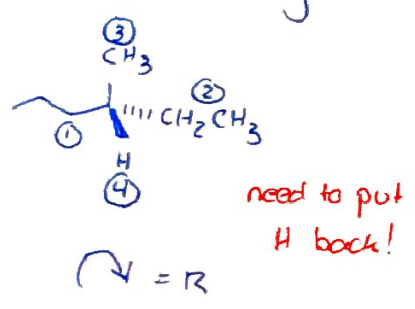 ③
CH₃
②
CH₂CH₃
①
H
④
need to put
H back!
= R